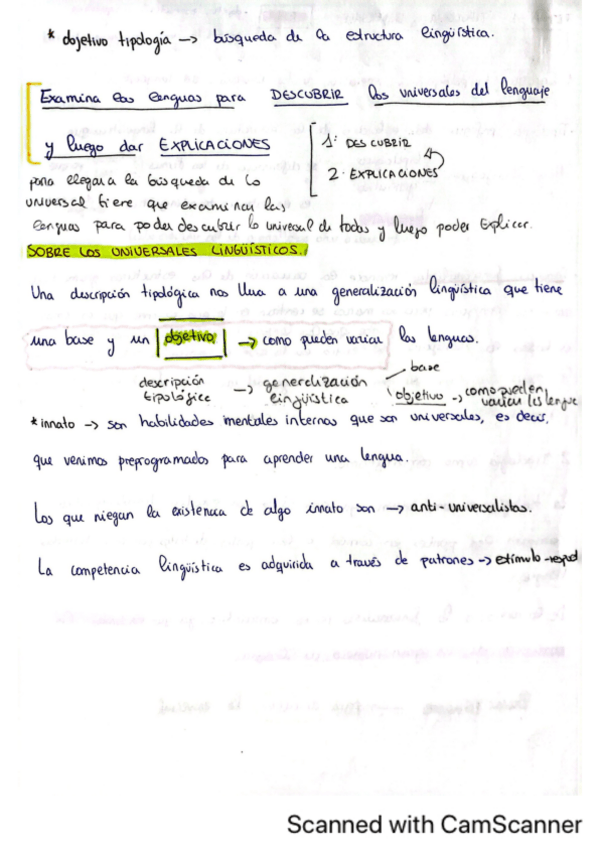 * objetivo tipología → búsqueda de la estructura lingüística.
Examina las lenguas para DESCUBRIR los universales del lenguaje
y luego dar EXPLICACIONES
1: DESCUBRIR
2. EXPLICACIONES
para llegar a la búsqueda de lo
universal tiene que examinar las
lenguas para poder descubrir lo universal de todas y luego poder explicar.
SOBRE LOS UNIVERSALES LINGÜÍSTICOS.
Una descripción tipológica nos lleva a una generalización lingüística que tiene
una base y un objetivo → como pueden variar las lenguas.
descripción tipológica → generalización lingüística
base
objetivo → como pueden variar las lengue
* innato → son habilidades mentales internas que son universales, es decir,
que venimos preprogramados para aprender una lengua.
Los que niegan la existencia de algo innato son → anti-universalistas.
La competencia lingüística es adquirida a través de patrones → estímulo-resp
Scanned with CamScanner